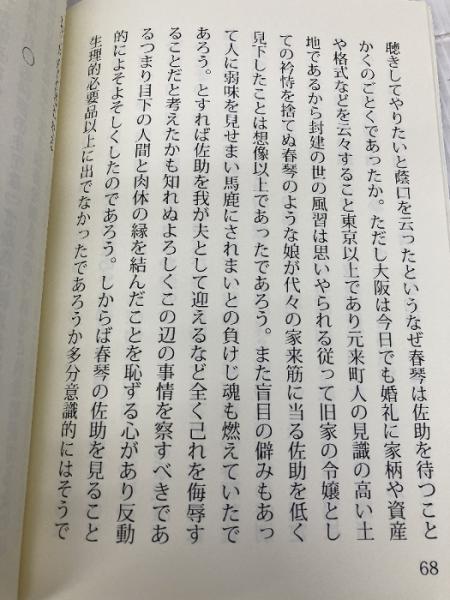 聴きしてやりたいと蔭口を云ったというなぜ春琴は佐助を待つこと
かくのごとくであったか。ただし大阪は今日でも婚礼に家柄や資産
や格式などを云々すること東京以上であり元来町人の見識の高い土
地であるから封建の世の風習は思いやられる従って旧家の令嬢とし
ての衿恃を捨てぬ春琴のような娘が代々の家来筋に当る佐助を低く
見下したことは想像以上であったであろう。また盲目の僻みもあっ
て人に弱味を見せまい馬鹿にされまいとの負けじ魂も燃えていたで
あろう。とすれば佐助を我が夫として迎えるなど全く己れを侮辱す
ることだと考えたかも知れぬよろしくこの辺の事情を察すべきであ
るつまり目下の人間と肉体の縁を結んだことを恥ずる心があり反動
的によそよそしくしたのであろう。しからば春琴の佐助を見ること
生理的必要品以上に出でなかったであろうか多分意識的にはそうで
68